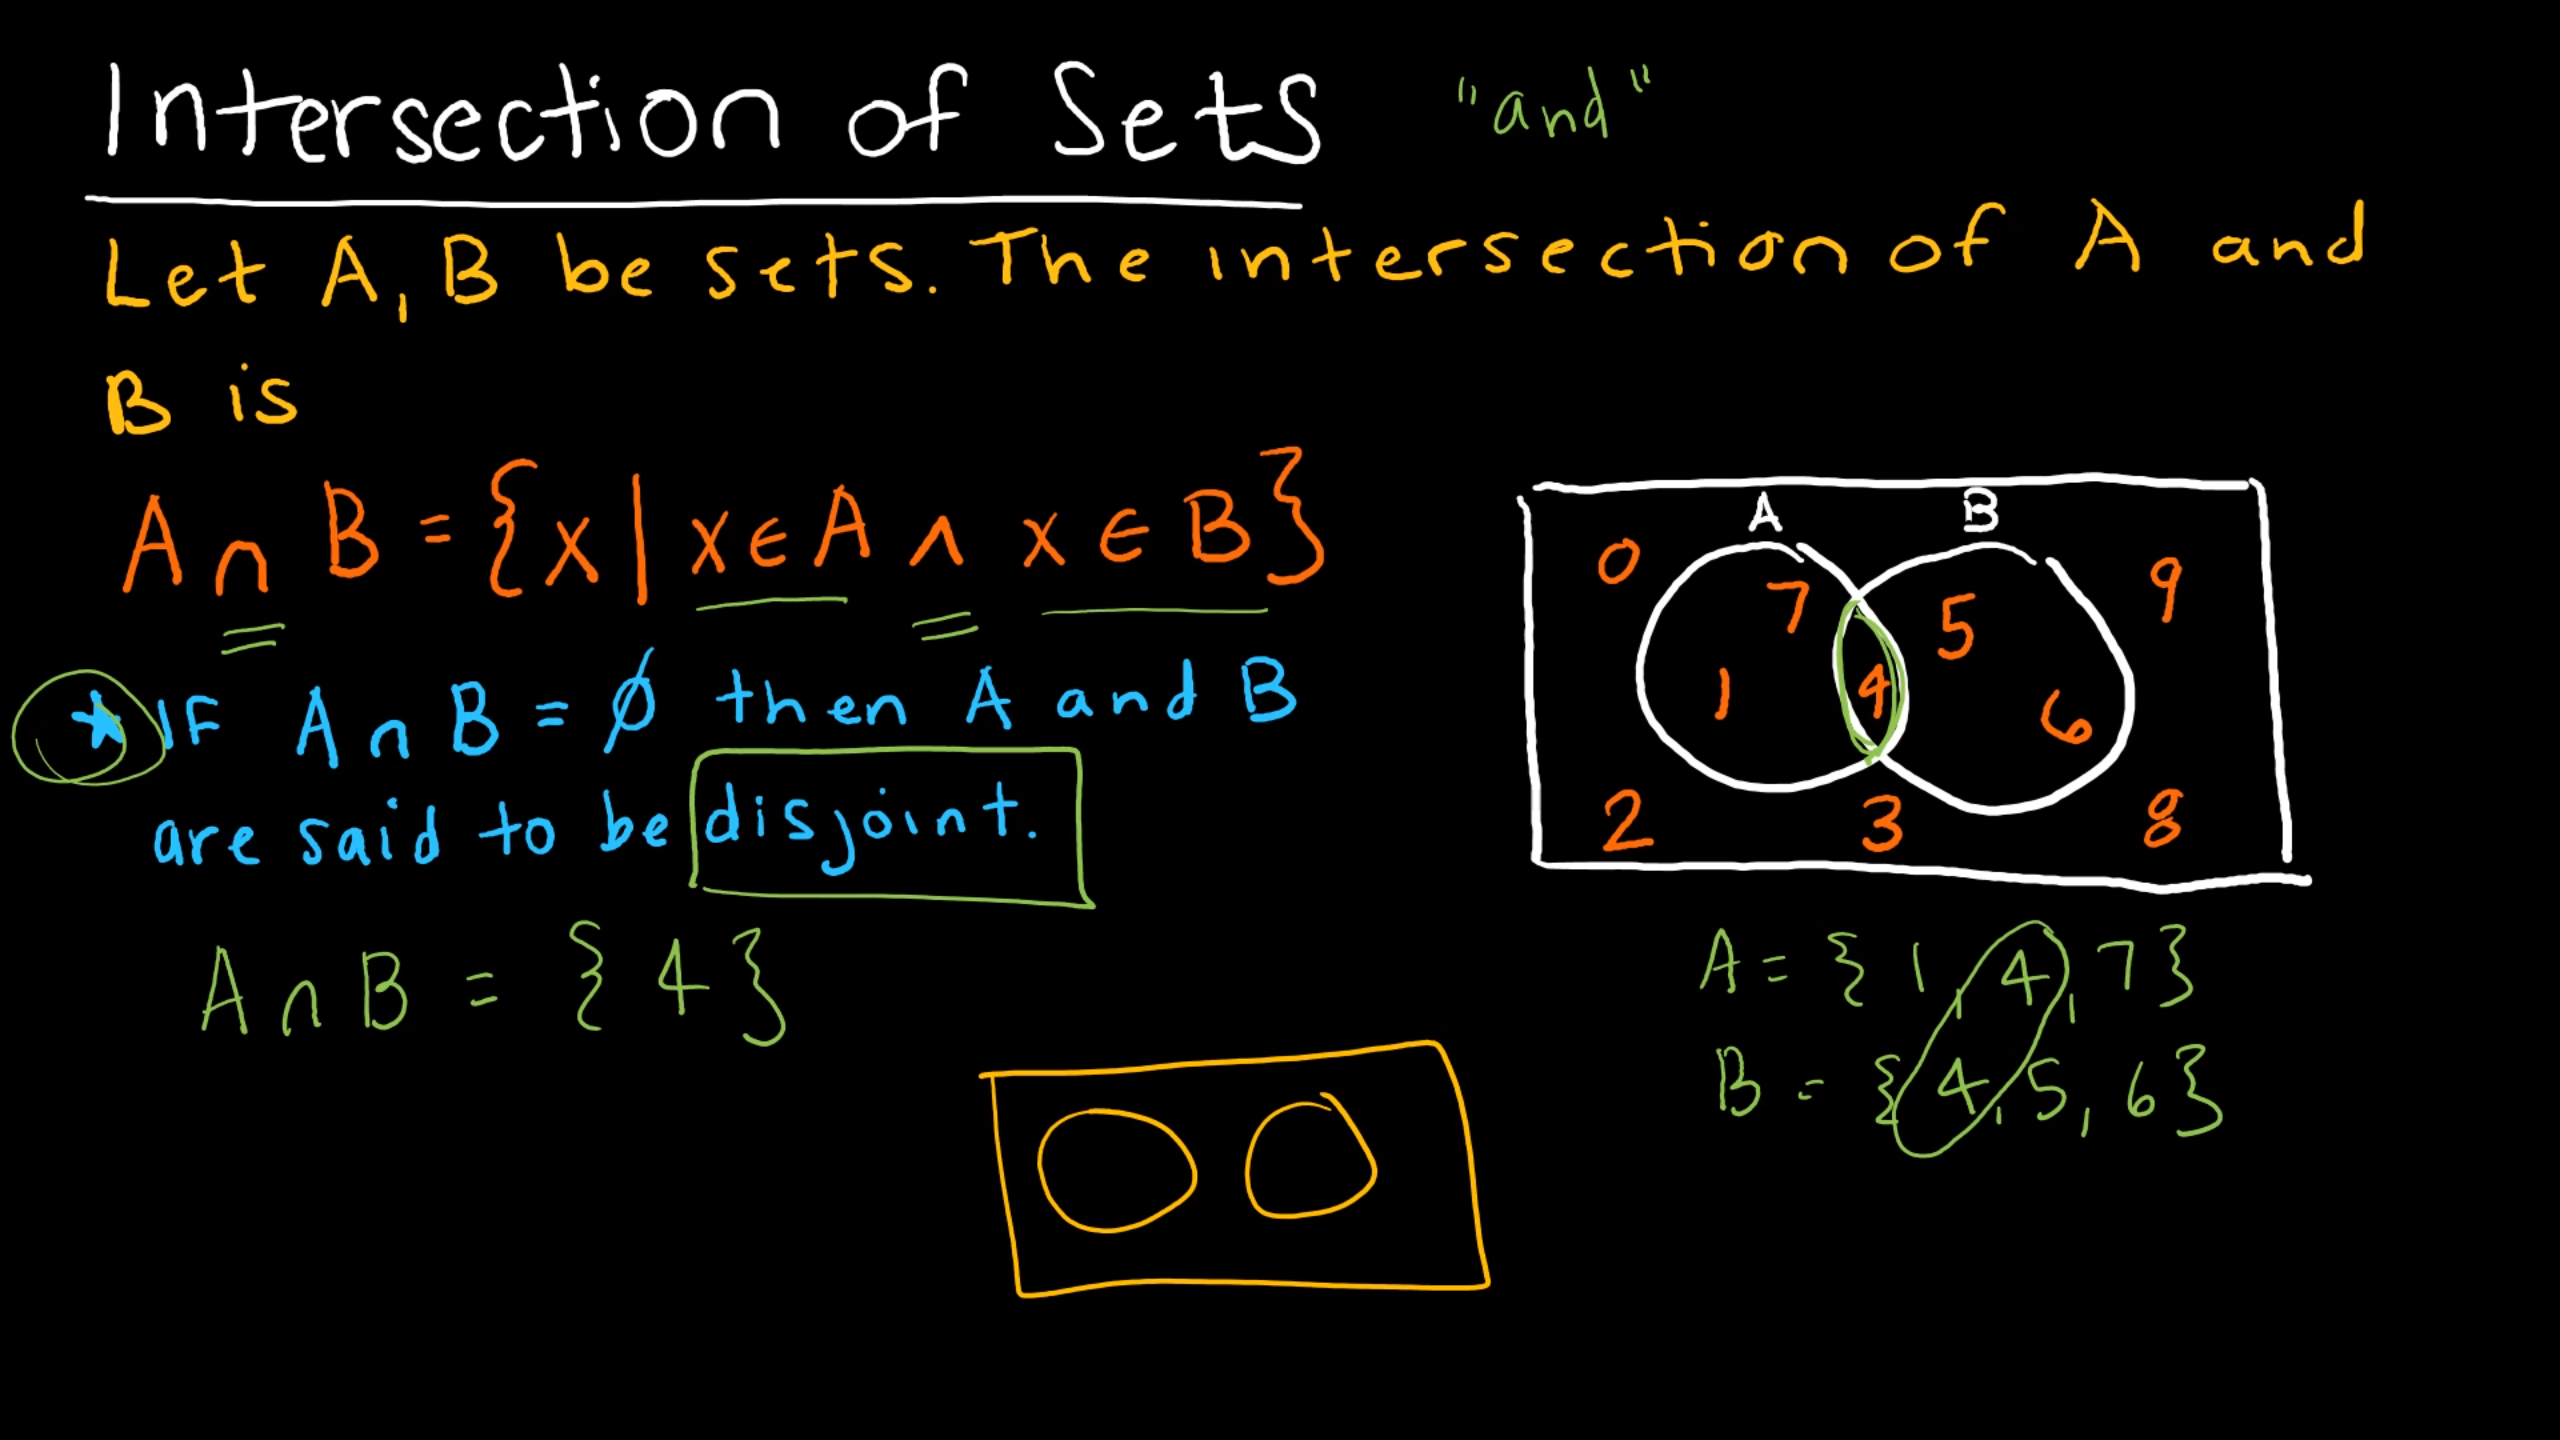 Intersection of Sets "and"
Let A, B be sets. The intersection of A and
B is
A ∩ B = {x | x ∈ A ∧ x ∈ B}
★ IF A ∩ B = ∅ then A and B
are said to be disjoint.
A ∩ B = {4}
A B
0 7 5 9
1 4 6
2 3 8
A = {1, 4, 7}
B = {4, 5, 6}